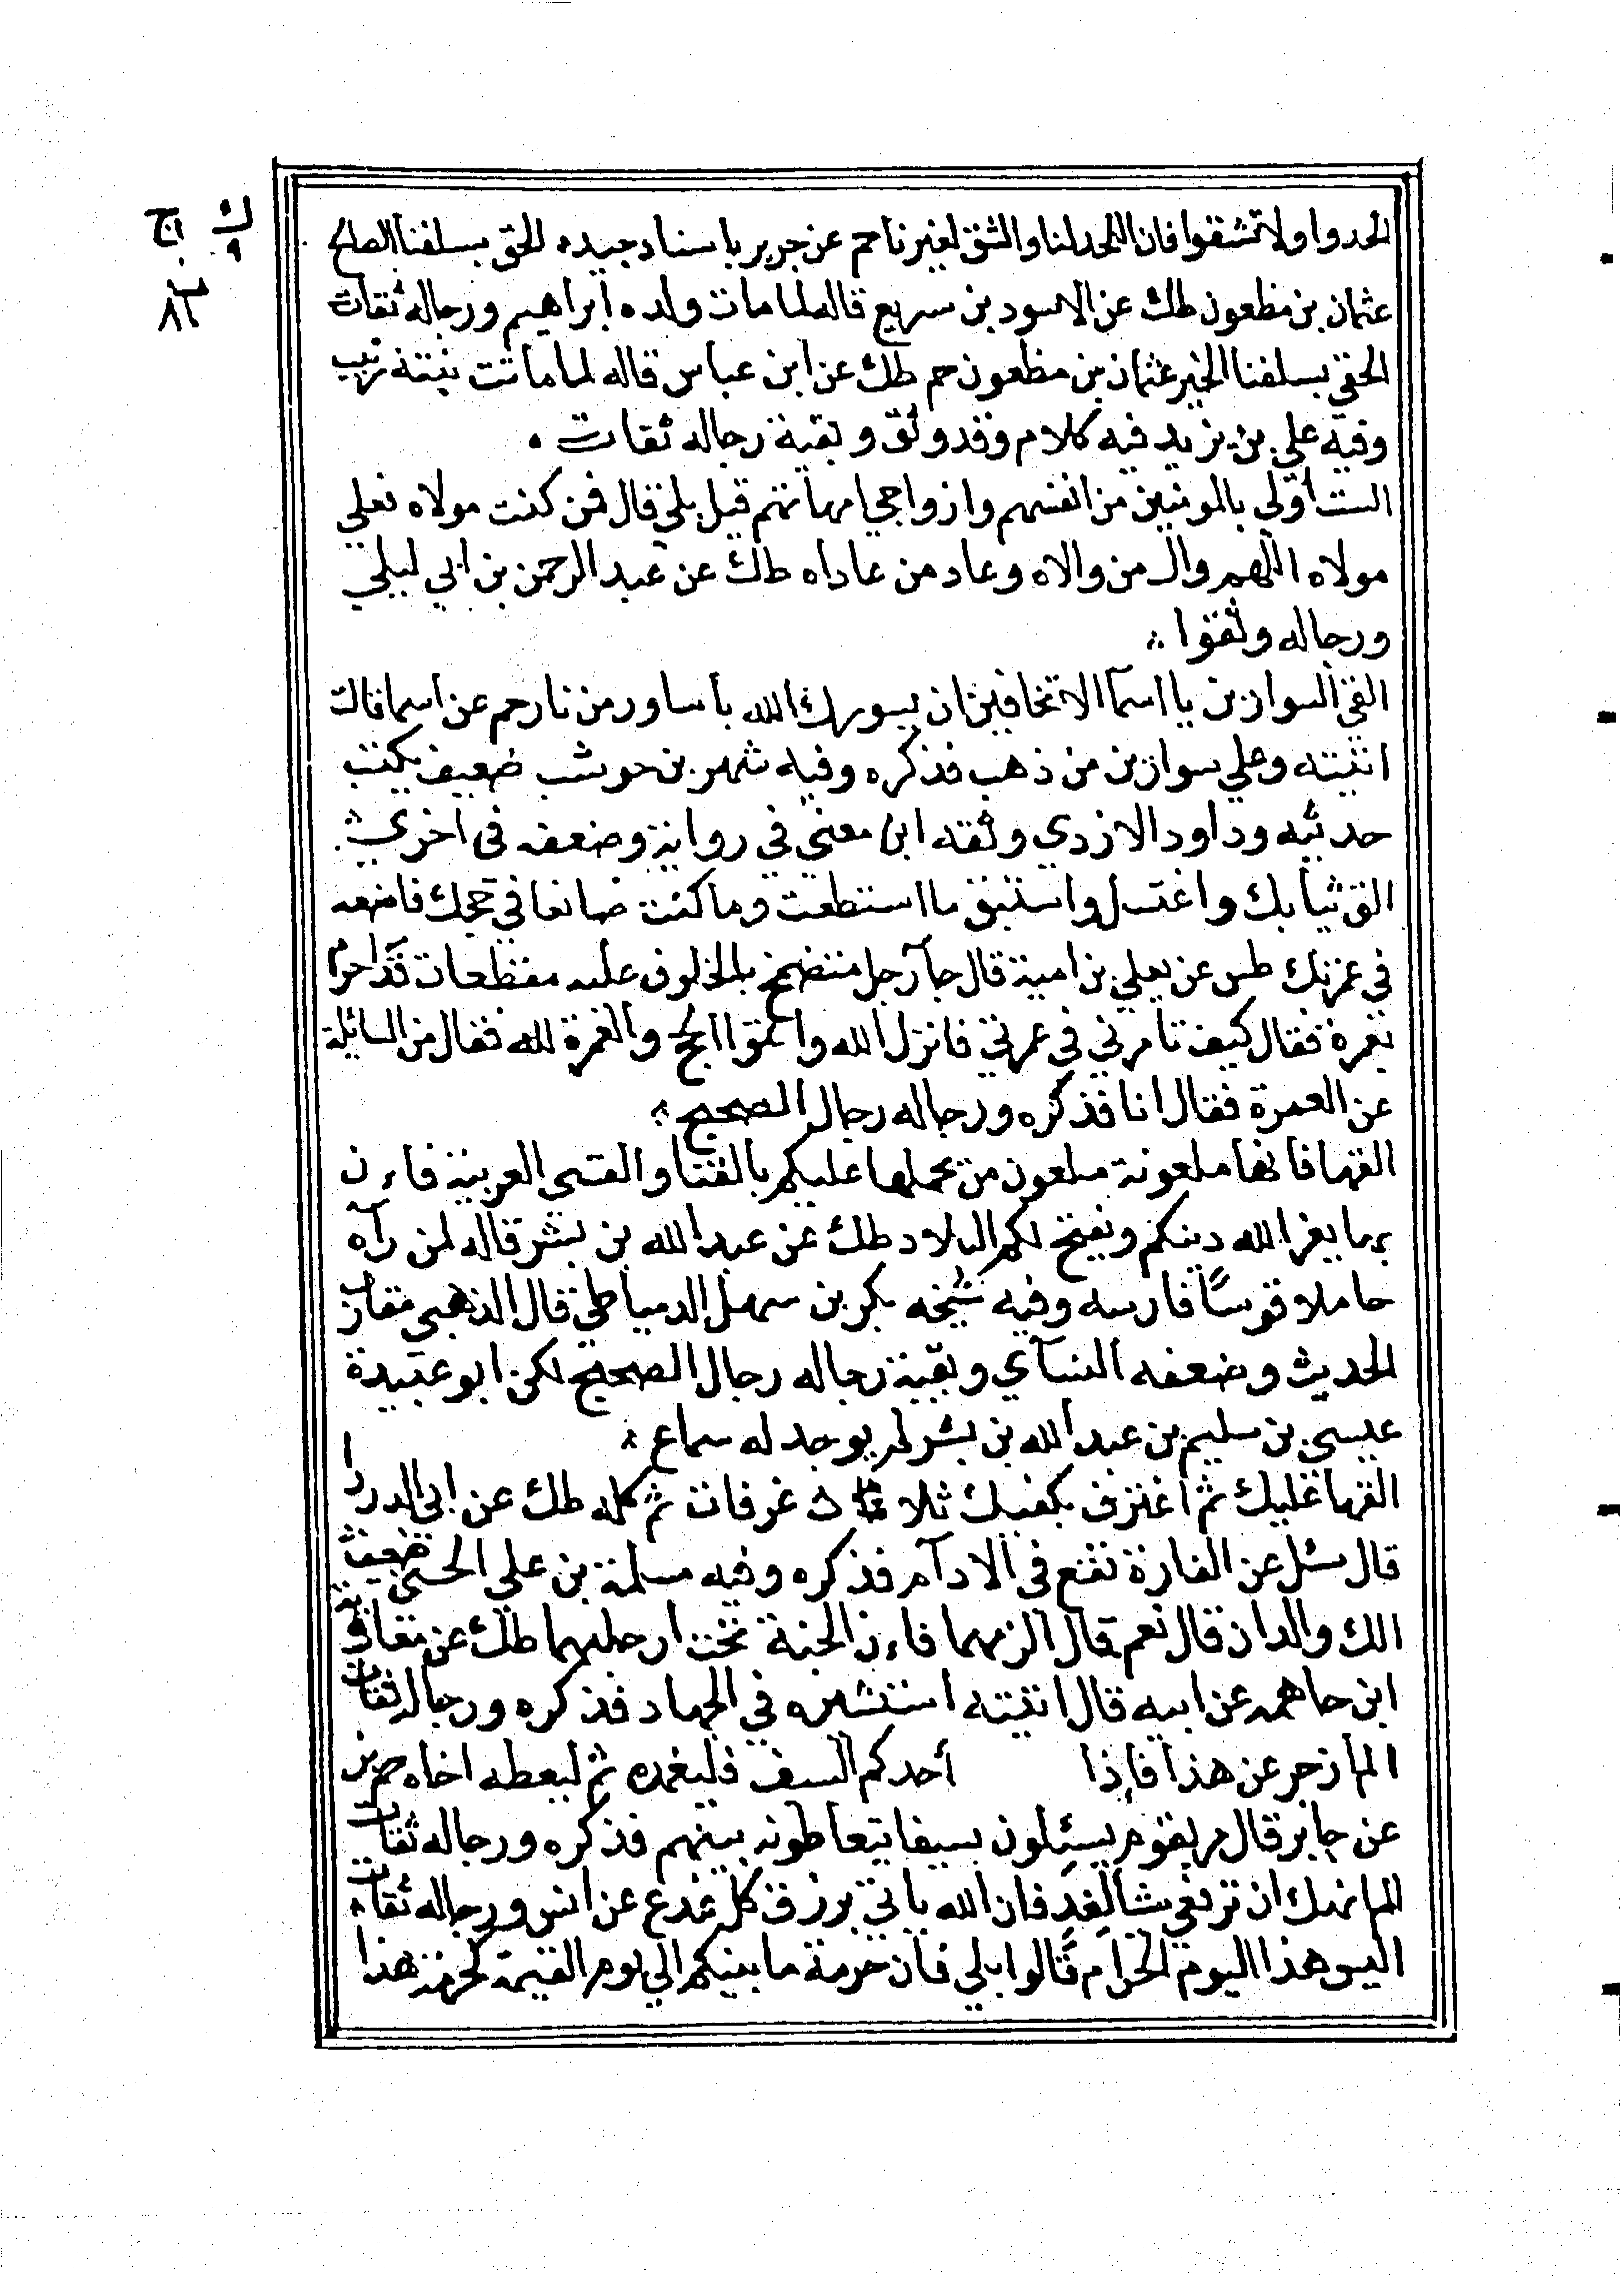 الحدوا ولا تشقوا فان اللحد لنا والشق لغيرنا حم عن جرير باسناد جيده الحق بسلفنا الصالح
عثمان بن مظعون طك عن الاسود بن سريع قاله لما مات ولده ابراهيم ورجاله ثقات
الحقي بسلفنا الخير عثمان بن مظعون حم طك عن ابن عباس قاله لما ماتت بنته زينب
وفيه علي بن يزيد فيه كلام وقد وثق وبقية رجاله ثقات
الست أولي بالمومنين من انفسهم وازواجي امهاتهم قيل بلي قال فمن كنت مولاه فعلي
مولاه اللهم وال من والاه وعاد من عاداه طك عن عبد الرحمن بن ابي ليلي
ورجاله وثقوا
القي السوارين يا اسما الا تخافين ان يسورك الله باساور من نار حم عن اسما قالت
اتيته وعلي سوارين من ذهب فذكره وفيه شهر بن حوشب ضعيف يكتب
حديثه وداود الازدي وثقه ابن معين في رواية وضعفه في اخري
الق ثيابك واغتسل واستنق ما استطعت وما كنت صانعا في حجك فاصنعه
في عمرتك طس عن يعلي بن امية قال جآ رجل متضمخ بالخلوق عليه مقطعات قد احرم
بعمرة فقال كيف تامرني في عمرتي فانزل الله واتموا الحج والعمرة لله فقال من السائل
عن العمرة فقال انا فذكره ورجاله رجال الصحيح
القها فانها ملعونة ملعون من يحملها عليكم بالقنا والقسي العربية فاءن
بها يعز الله دينكم ويفتح لكم البلاد طك عن عبد الله بن بشر قاله لمن رآه
حاملا قوسًا فارسه وفيه شيخه بكر بن سهل الدمياطي قال الذهبي مقارب
الحديث وضعفه النسآي وبقية رجاله رجال الصحيح لكن ابو عبيدة
عيسي بن سليم بن عبد الله بن بشر لم يوجد له سماع
القها عليك ثم اغترف بكفيك ثلاث غرفات ثم كله طك عن ابي الدردا
قال سئل عن الفارة تقع في الادآم فذكره وفيه مسلمة بن علي الحسني ضعيف
الك والدان قال نعم قال الزمهما فاءن الجنة تحت ارجلهما طك عن معاوية
ابن جاهمه عن ابيه قال اتيته استشيره في الجهاد فذكره ورجاله ثقات
الم ازجر عن هذا فإذا أحدكم السيف فليغمده ثم ليعطه اخاه حم بز
عن جابر قال مر بقوم يسئلون سيفا يتعاطونه بينهم فذكره ورجاله ثقات
الم انهك ان ترفعي شا لغد فان الله ياتي برزق كل غد ع عن انس ورجاله ثقات
اليس هذا اليوم الحرام قالوا بلي فان حرمة ما بينكم الي يوم القيمة كحرمة هذا